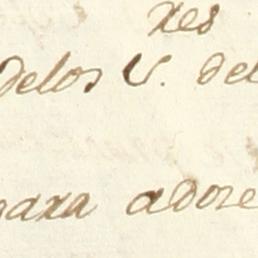 res
delos V. del
para adore